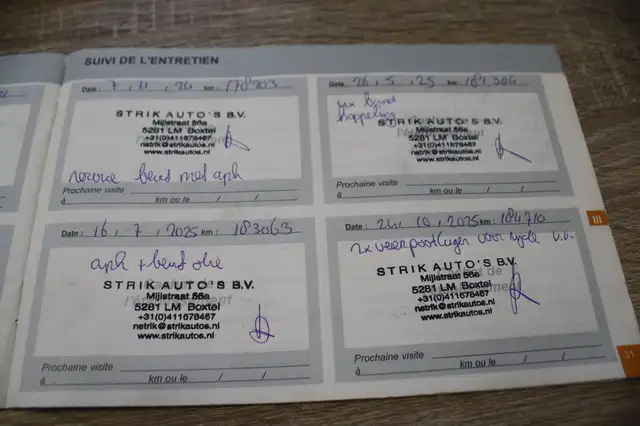 SUIVI DE L'ENTRETIEN
Date : 7 , 11 , 24 km : 178203
STRIK AUTO'S B.V.
Mijlstraat 56a
5281 LM Boxtel
+31(0)411678467
nstrik@strikautos.nl
www.strikautos.nl
met aph
Prochaine visite
à km ou le / /
Date : 26 , 5 , 25 km :
STRIK AUTO'S B.V.
Mijlstraat 56a
5281 LM Boxtel
+31(0)411678467
nstrik@strikautos.nl
www.strikautos.nl
Prochaine visite
à km ou le / /
Date : 16 , 7 , 2025 km : 183063
aph + olie
STRIK AUTO'S B.V.
Mijlstraat 56a
5281 LM Boxtel
+31(0)411678467
nstrik@strikautos.nl
www.strikautos.nl
Prochaine visite
à km ou le / /
Date : 24 , 10 , 2025 km : 184710
2x veerpootlager voor
STRIK AUTO'S B.V.
Mijlstraat 56a
5281 LM Boxtel
+31(0)411678467
nstrik@strikautos.nl
www.strikautos.nl
Prochaine visite
à km ou le / /
III
31